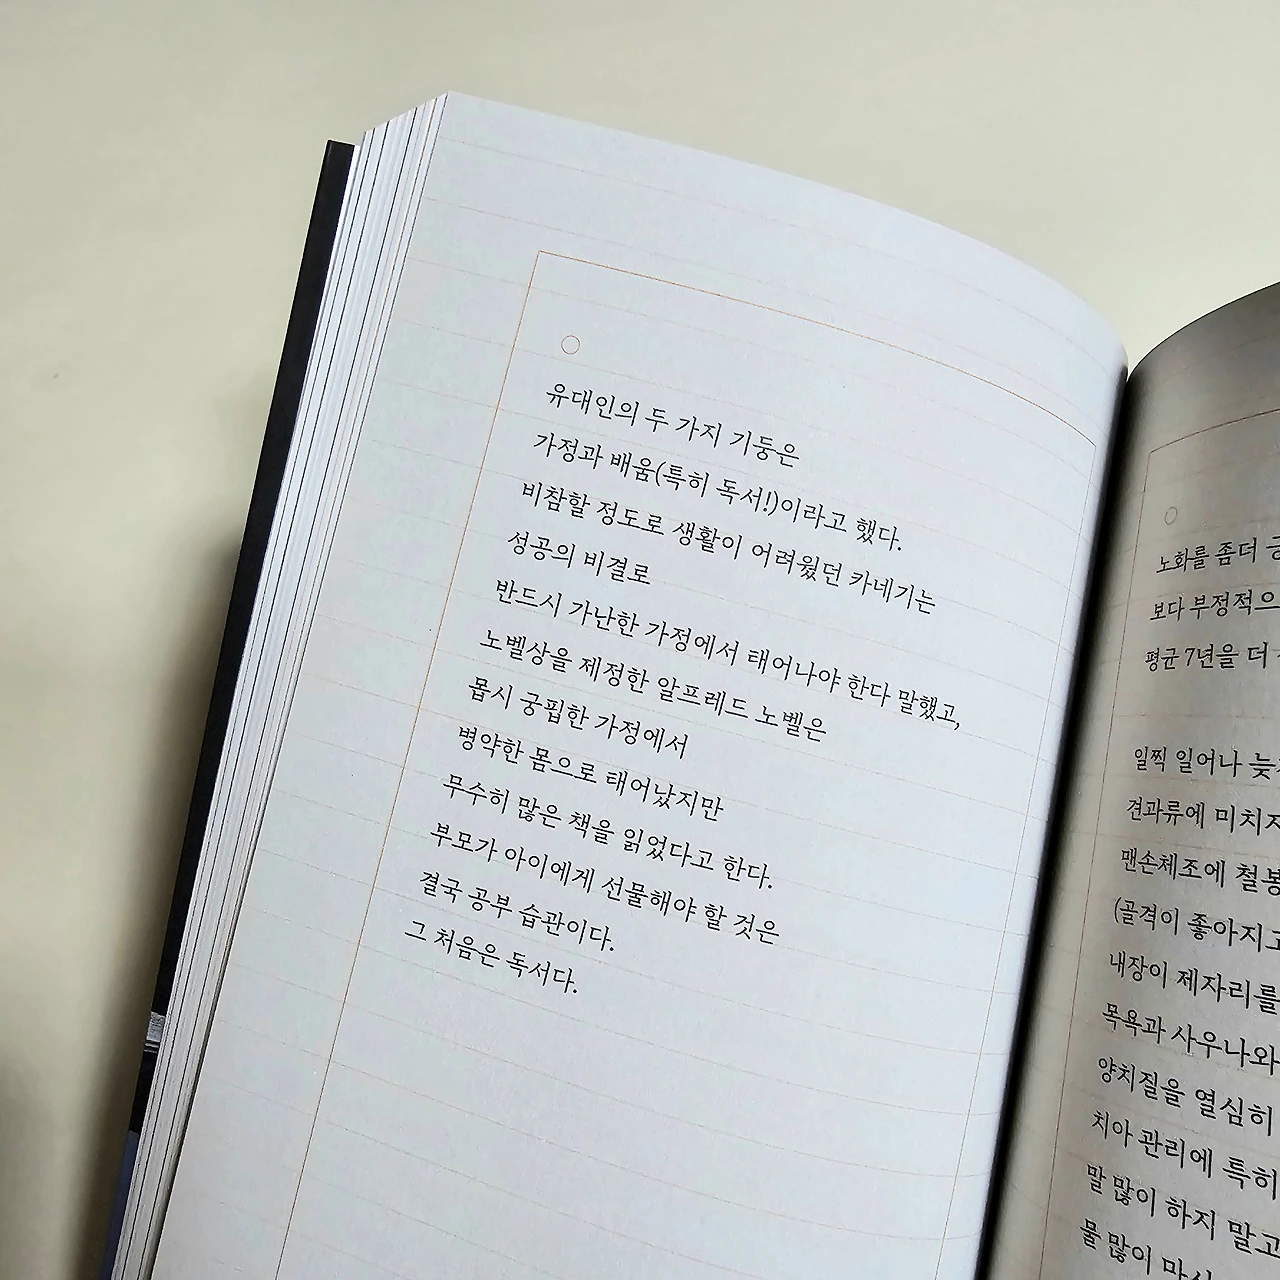 유대인의 두 가지 기둥은
가정과 배움(특히 독서!)이라고 했다.
비참할 정도로 생활이 어려웠던 카네기는
성공의 비결로
반드시 가난한 가정에서 태어나야 한다 말했고,
노벨상을 제정한 알프레드 노벨은
몹시 궁핍한 가정에서
병약한 몸으로 태어났지만
무수히 많은 책을 읽었다고 한다.
부모가 아이에게 선물해야 할 것은
결국 공부 습관이다.
그 처음은 독서다.
노화를 좀더
보다 부정적으
평균 7년을 더
일찍 일어나
견과류에 미치
맨손체조에 철봉
(골격이 좋아지고
내장이 제자리를
목욕과 사우나와
양치질을 열심히
치아 관리에 특히
말 많이 하지 말고
물 많이